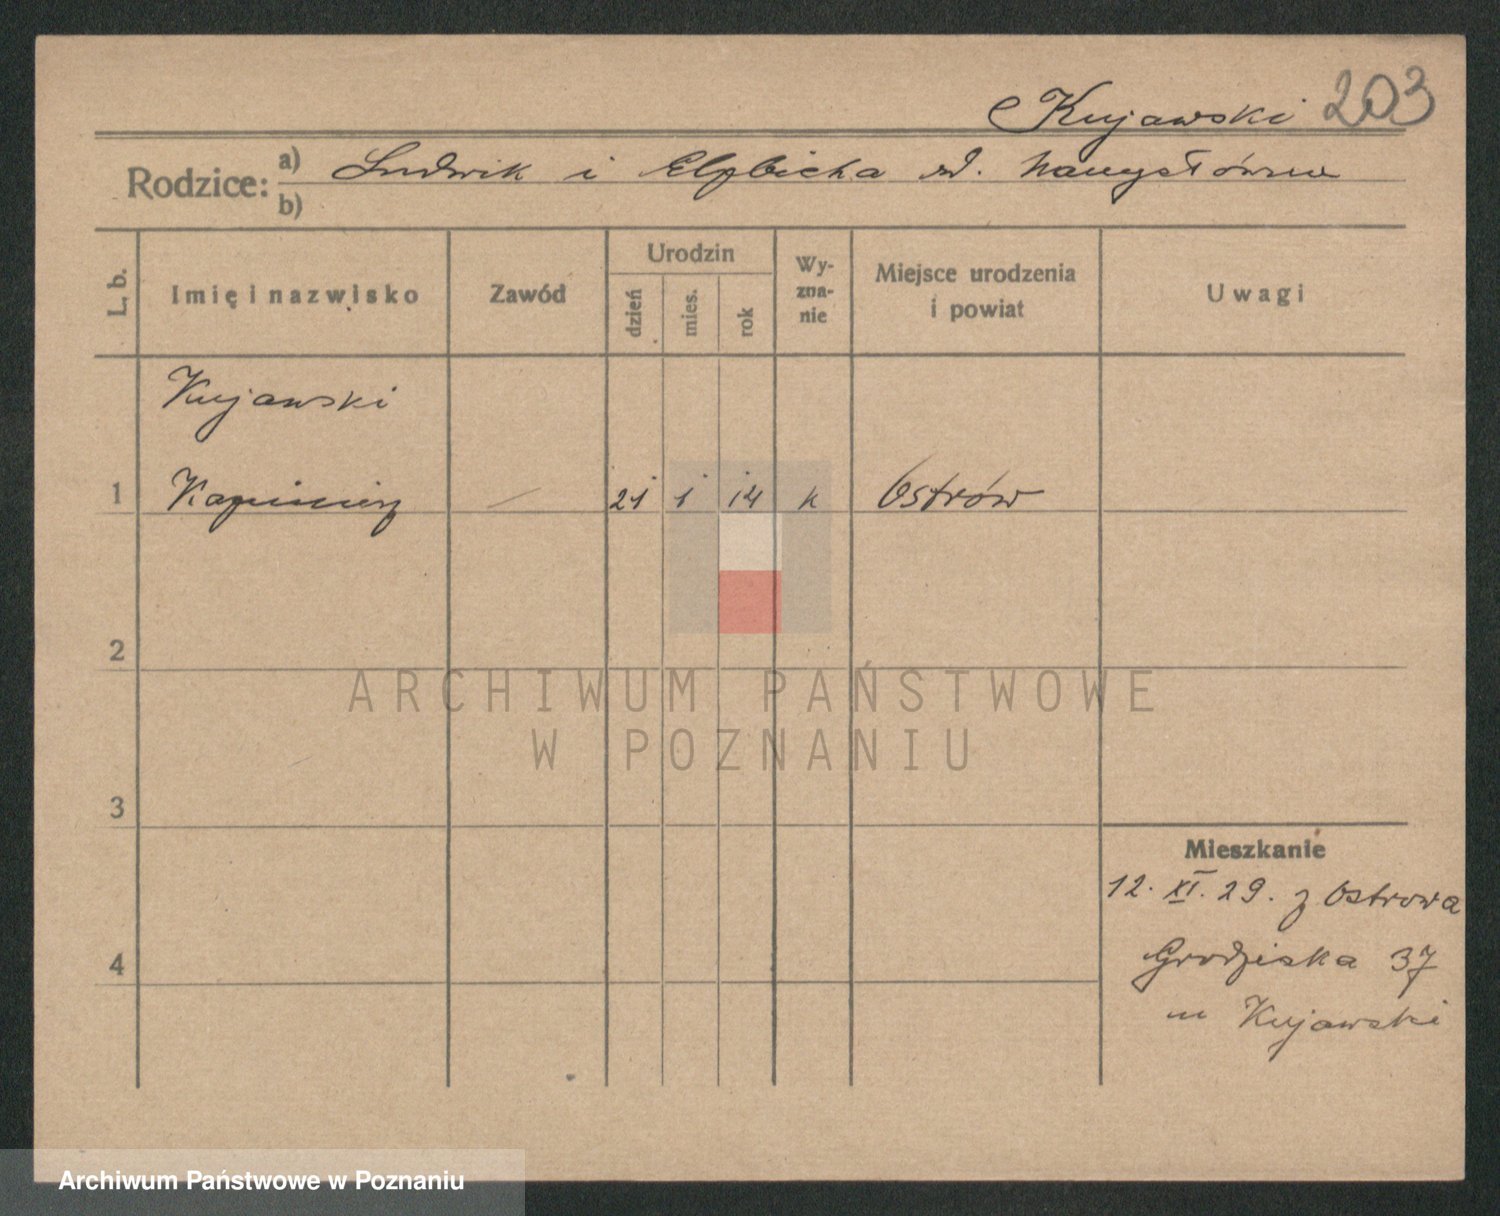 Kujawski 203
Rodzice: a) Ludwik i Elżbieta zd. Namysłówna
b)
L. b.
Imię i nazwisko
Zawód
Urodzin
dzień
mies.
rok
Wy-
zna-
nie
Miejsce urodzenia
i powiat
Uwagi
Kujawski
1 Kazimierz — 21 1 14 k Ostrów
2
ARCHIWUM PAŃSTWOWE
W POZNANIU
3
Mieszkanie
12. XI. 29. z Ostrowa
4 Grodziska 37
m Kujawski
Archiwum Państwowe w Poznaniu